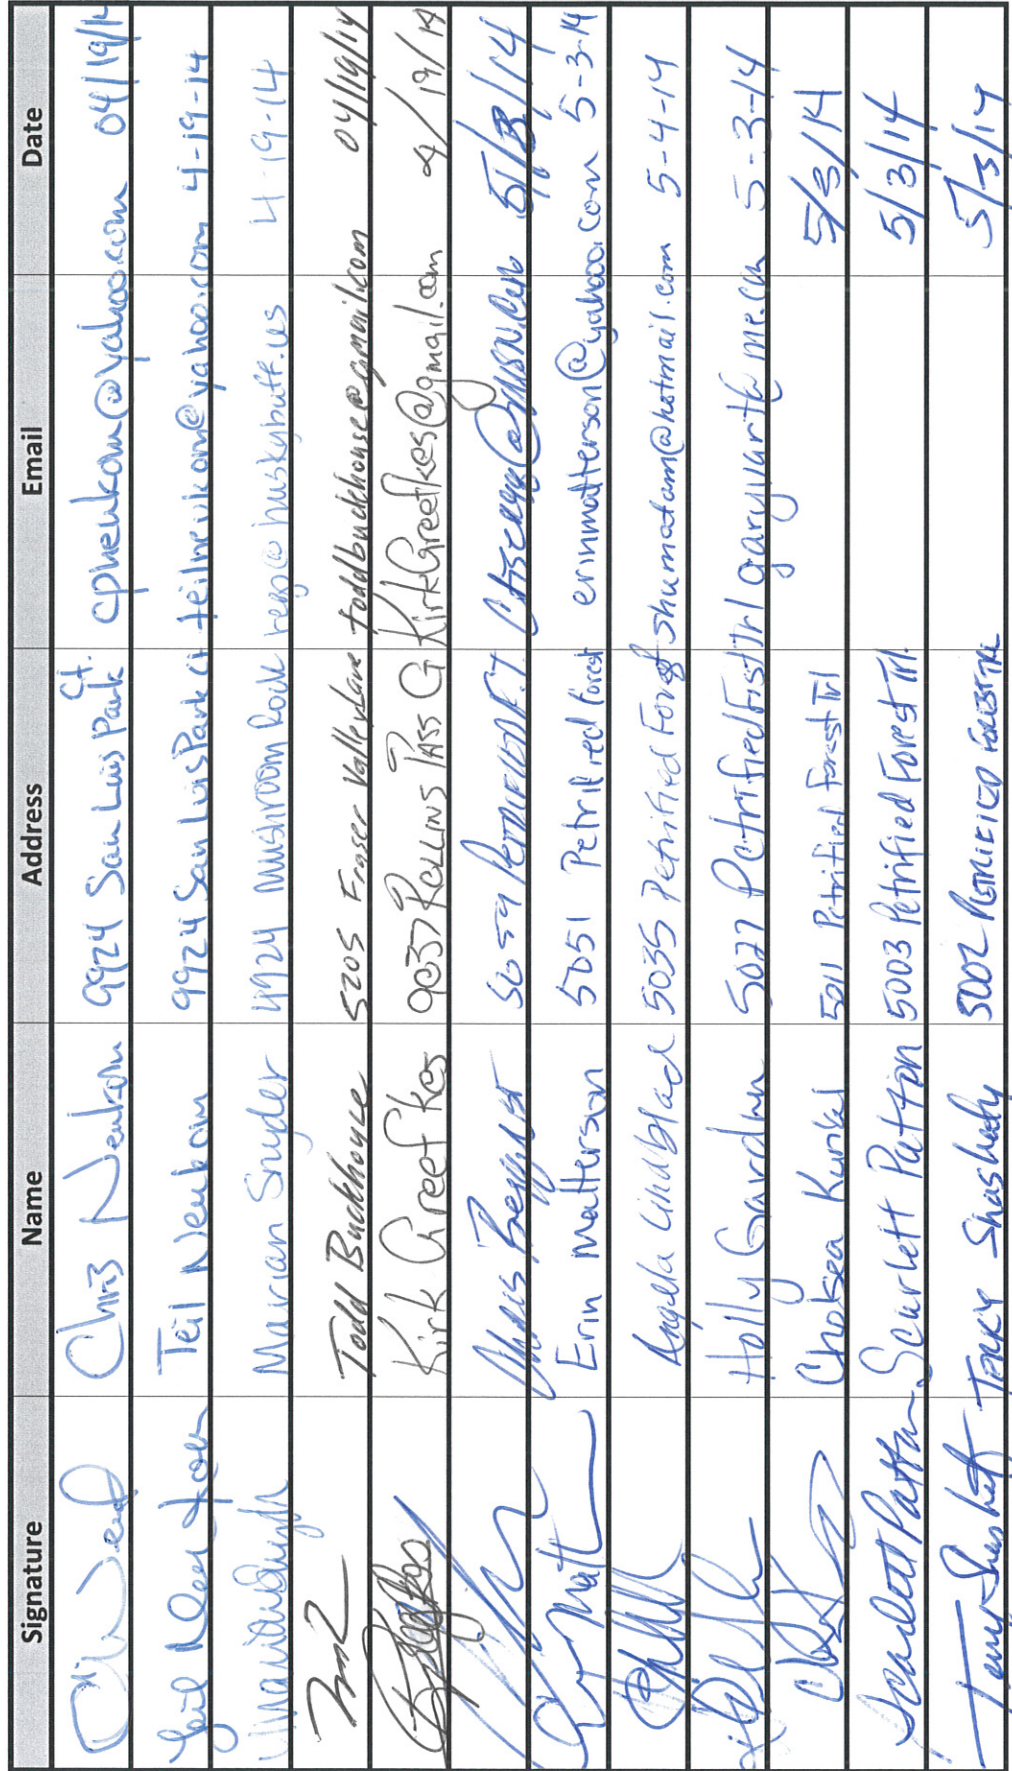 Signature Name Address Email Date
Chris Neukom 9924 San Luis Park Ct. cpneukom@yahoo.com 04/19/14
Teil Neukom 9924 San Luis Park Ct teilneukom@yahoo.com 4-19-14
Marian Snyder 4924 Mushroom Rock regs@huskybuff.us 4-19-14
Todd Buckhouse 5205 Fraser Valley Lane toddbuckhouse@gmail.com 04/19/14
Kirk Greefkes 9037 ROLLINS PASS Ct KirkGreefkes@gmail.com 4/19/14
5059 5/3/14
Erin Matterson 5051 Petrified Forest erinmatterson@yahoo.com 5-3-14
Angella Lindblad 5035 Petrified Forest shumatam@hotmail.com 5-4-14
Holly Gardner 5027 Petrified 5-3-14
Chelsea Kunkel 5011 Petrified Forest Trl 5/3/14
Scarlett Patton Scarlett Patton 5003 Petrified Forest Trl. 5/3/14
5002 PETRIFIED FOREST TRL 5/3/14